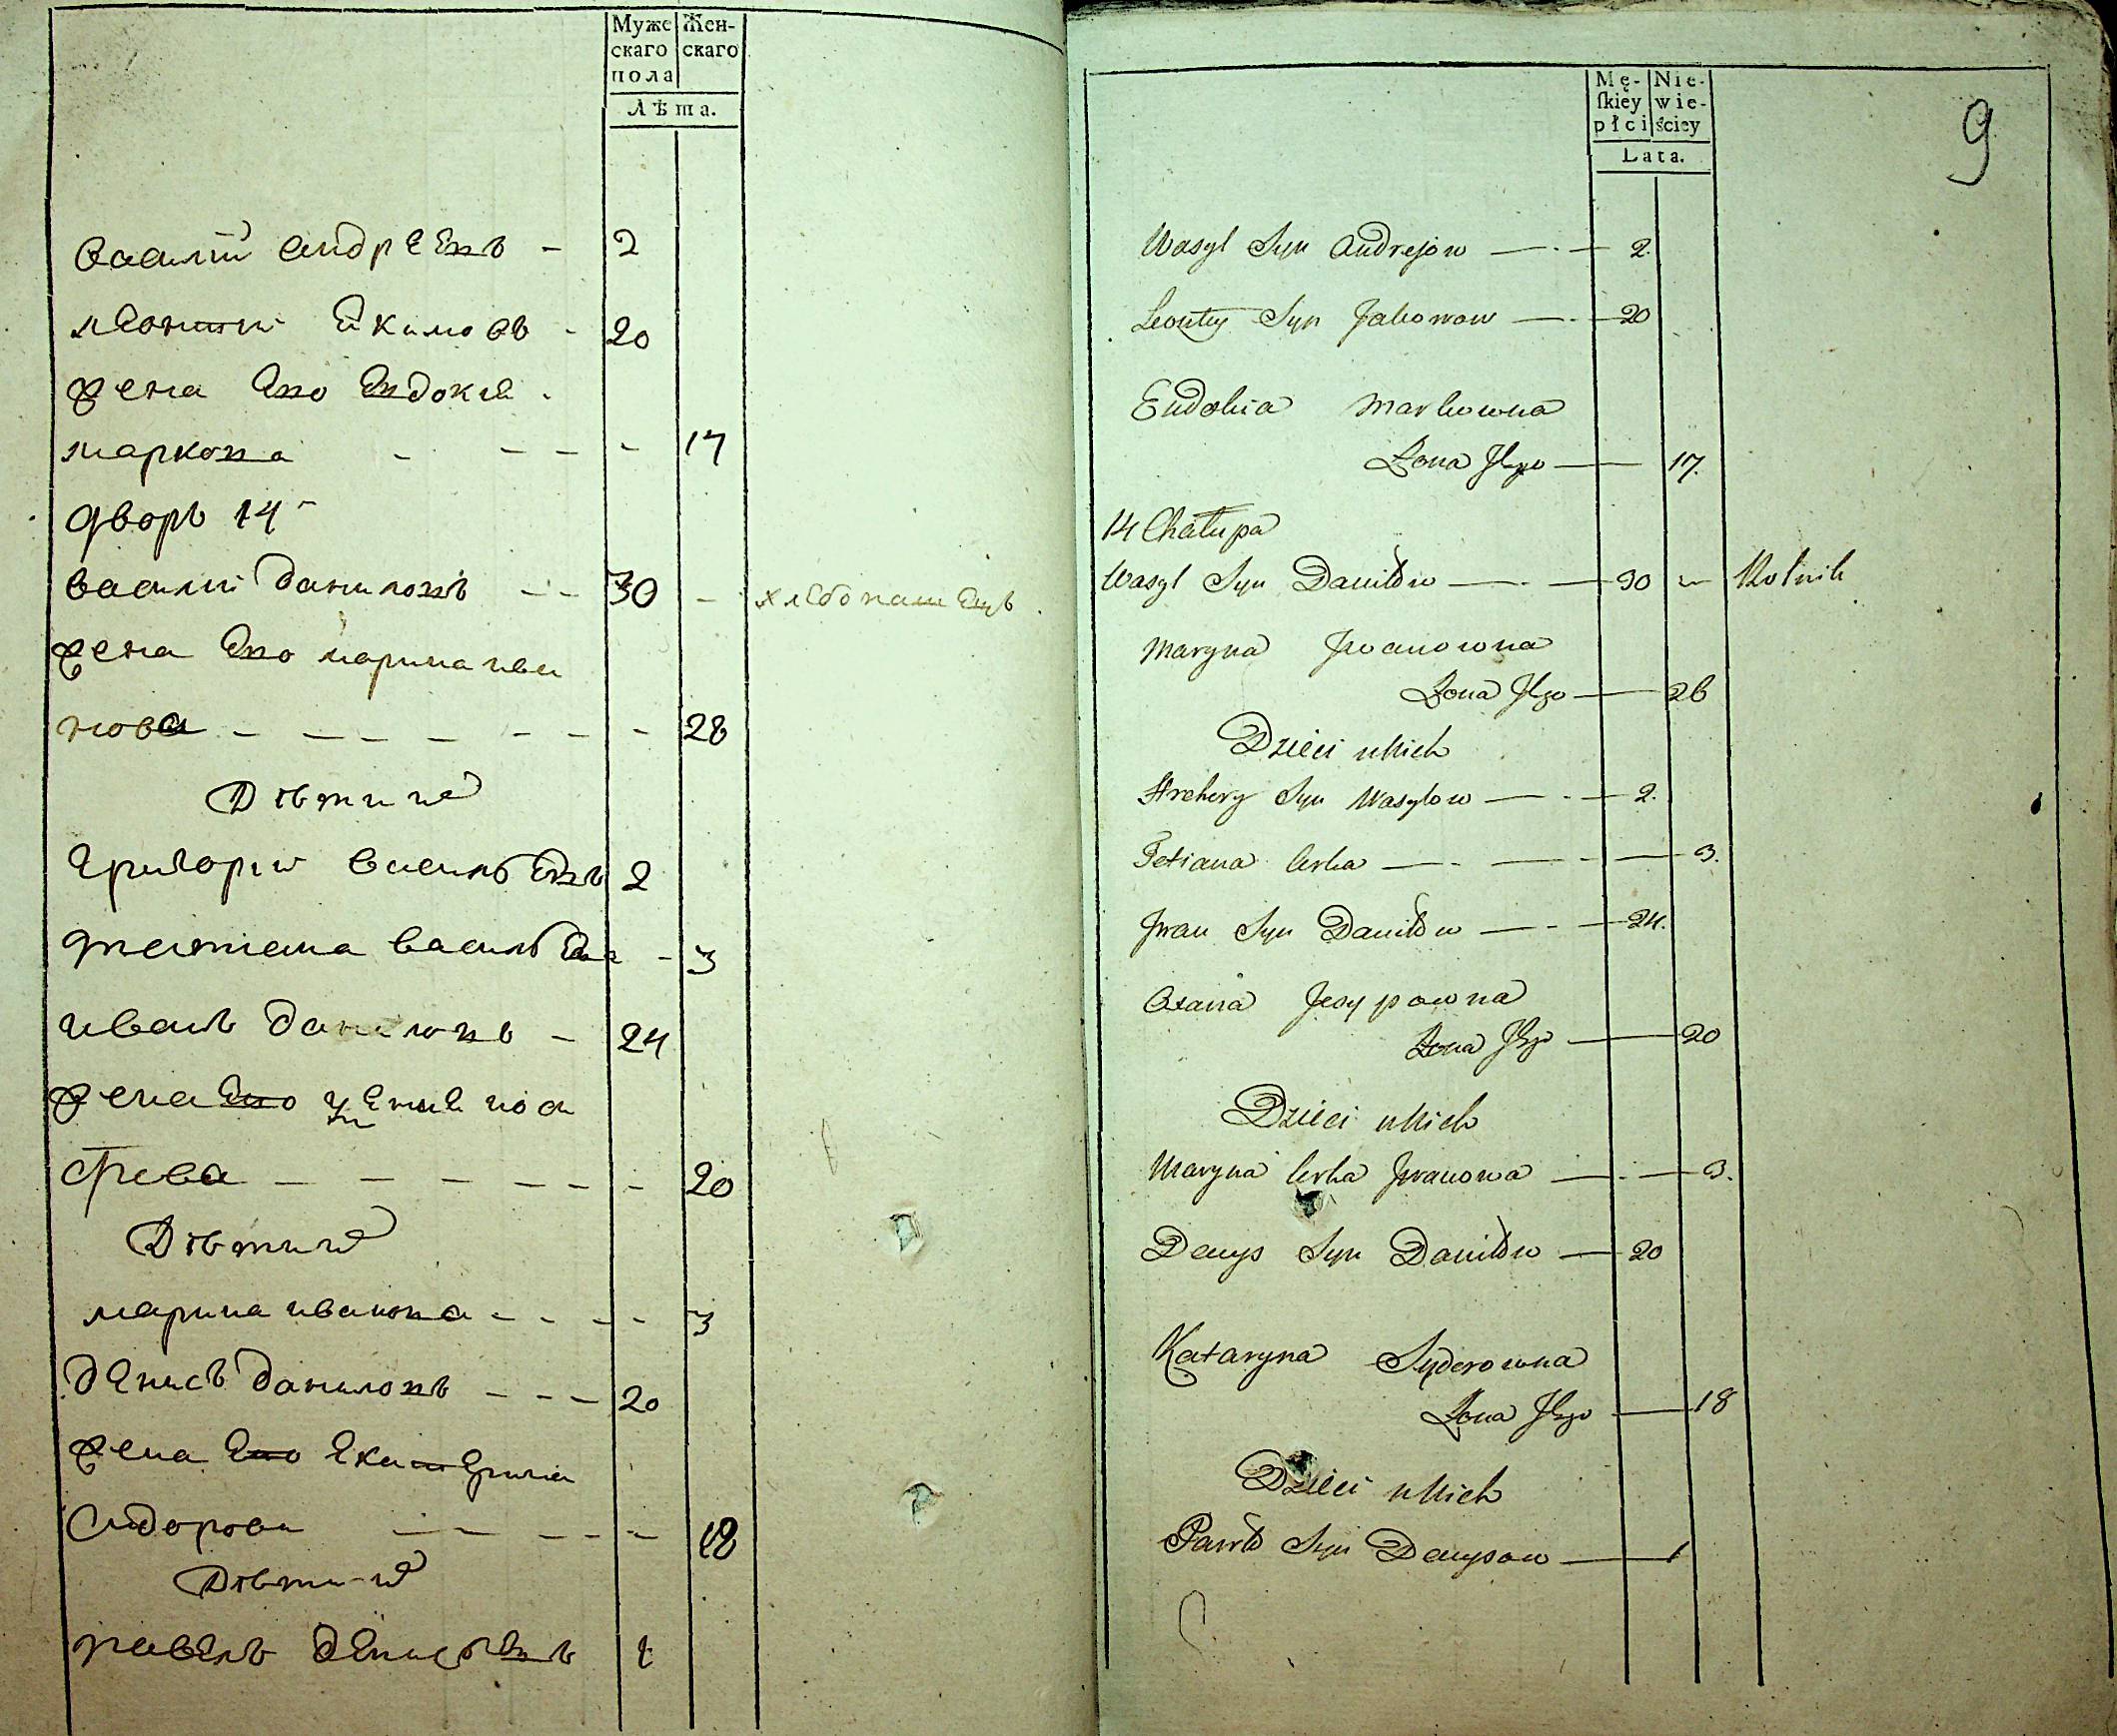 Муже
скаго
пола
Жен-
скаго
Лѣта.
Василій андрѣевъ - 2
леонтий Екимовъ - 20
жена Ево Евдокия
маркова - - - - 17
дворъ 14
василий даниловъ - - 30 - хлебопашецъ
жена Ево марина ива
нова - - - - - - - 28
Дѣтии
Григории васильевъ 2
татиана васильева - 3
иванъ даниловъ - 24
жена Ево
- - - - - - 20
Дѣтии
марина иванова - - - - 3
денисъ даниловъ - - - 20
жена Ево Екатерина
Сидорова - - - - - 18
Дѣтии
павелъ денисьевъ 1
9
Mę-
ſkiey
płci
Nie-
wie-
ściey
Lata.
Wasyl Syn Andrejow — · — 2.
Leonty Syn Jakowow — · — 20
Eudokia Markowna
Żona Jego — — 17.
14 Chałupa
Wasyl Syn Daniłow — · — 30 — Rolnik
Maryna Iwanowna
Żona Jego — — 26
Dzieci u Nich
Hrehory Syn Wasylow — · — 2.
Tetiana Corka — · — · — 3.
Iwan Syn Daniłow — · — 24.
Oxana Jesypowna
Żona Jego — — 20
Dzieci u Nich
Maryna Corka Iwanowa — · — 3.
Denys Syn Daniłow — 20
Kataryna Syderowna
Żona Jego — 18
Dzieci u Nich
Pawło Syn Denysow — 1